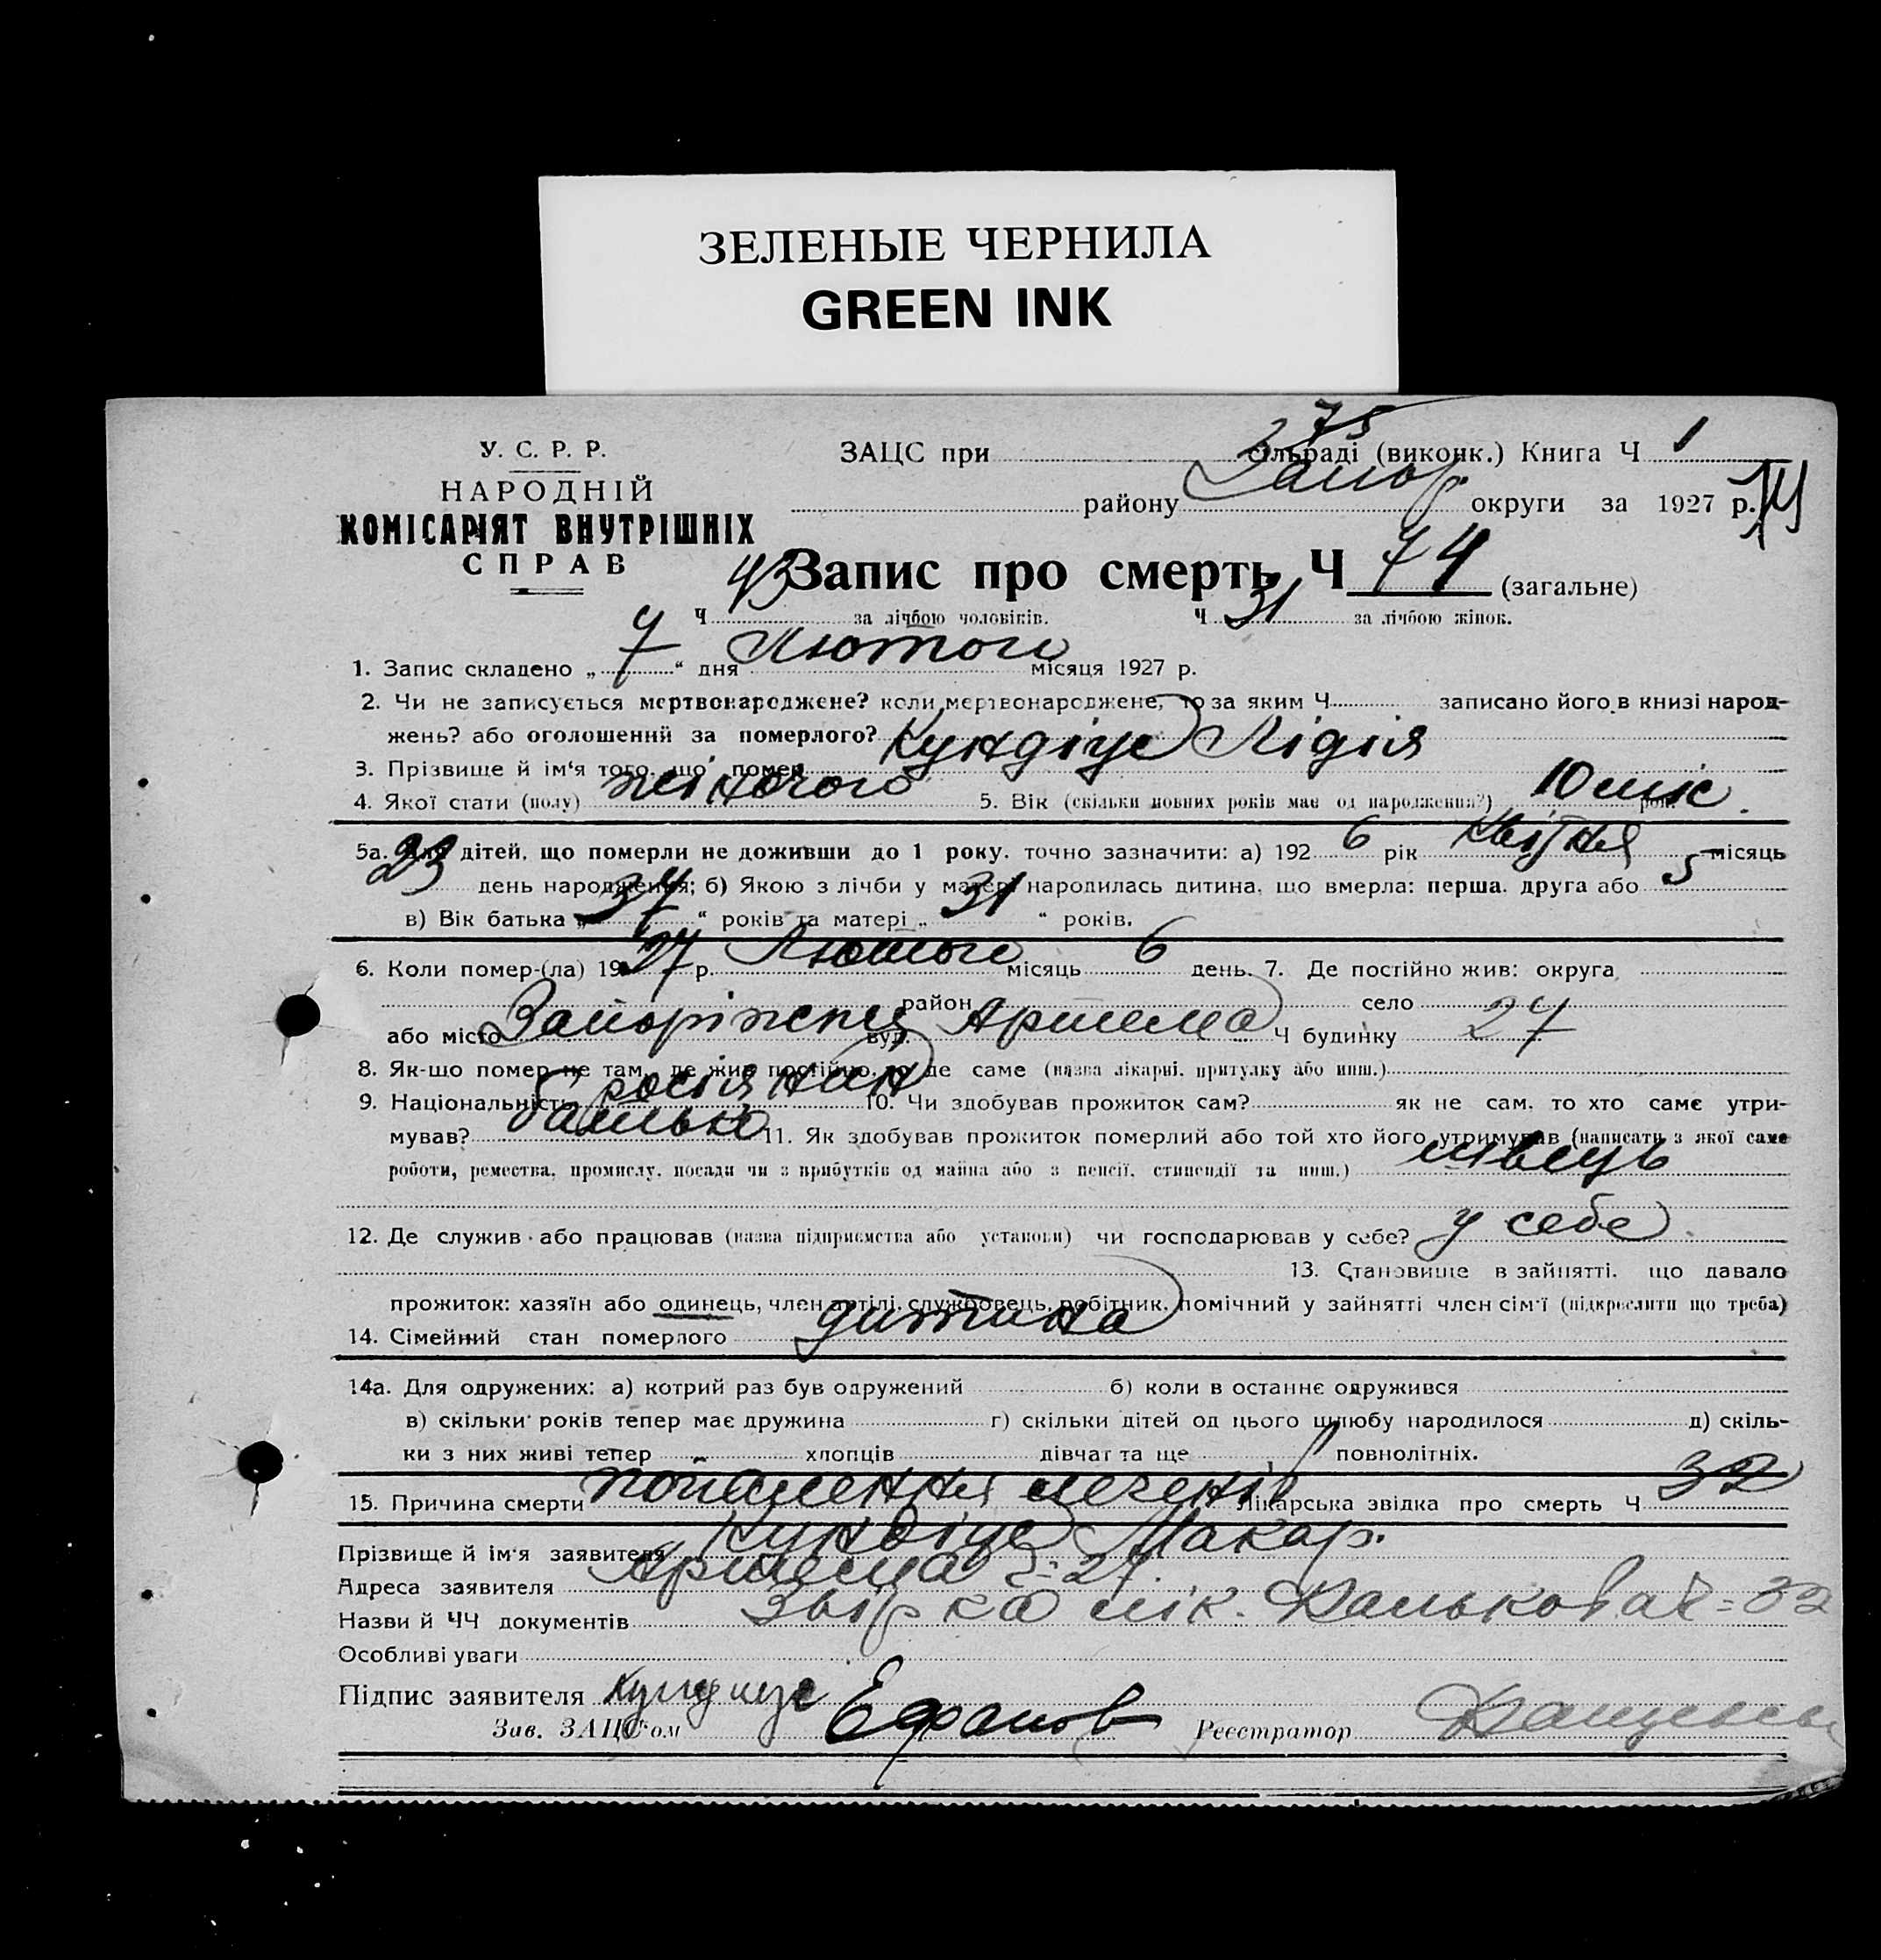 ЗЕЛЕНЫЕ ЧЕРНИЛА
GREEN INK
75
У. С. Р. Р.
ЗАЦС при сільраді (виконк.) Книга Ч 1
НАРОДНІЙ
району Запор. округи за 1927 р.
КОМІСАРІЯТ ВНУТРІШНІХ
СПРАВ
Запис про смерть Ч 74 (загальне)
Ч 43 за лічбою чоловіків. Ч 31 за лічбою жінок.
1. Запис складено „ 7 “ дня Лютого місяця 1927 р.
2. Чи не записується мертвонароджене? коли мертвонароджене, то за яким Ч записано його в книзі народ-
жень? або оголошений за померлого?
3. Прізвище й ім‘я того, що помер Кундіус Лідія
4. Якої стати (полу) жіночого 5. Вік (скільки повних років має од народження?) 10 міс. рок.
5а. Для дітей, що померли не доживши до 1 року, точно зазначити: а) 192 6 рік Квітня місяць
23 день народження; б) Якою з лічби у матері народилась дитина, що вмерла: перша, друга або 5
в) Вік батька „ 37 “ років та матері „ 31 “ років.
6. Коли помер-(ла) 1927 р. Лютого місяць 6 день. 7. Де постійно жив: округа
район село
або місто Запоріжжя вул. Артема Ч будинку 27
8. Як-що помер не там, де жив постійно, то де саме (назва лікарні, притулку або инш.)
9. Національність росіянин 10. Чи здобував прожиток сам? як не сам, то хто саме утри-
мував? батько 11. Як здобував прожиток померлий або той хто його утримував (написати з якої саме
роботи, ремества, промислу, посади чи з прибутків од майна або з пенсії, стипендії та инш.) швець
12. Де служив або працював (назва підприємства або установи) чи господарював у себе? у себе
13. Становище в зайнятті, що давало
прожиток: хазяїн або одинець, член артілі, службовець, робітник, помічний у зайнятті член сім‘ї (підкреслити що треба)
14. Сімейний стан померлого дитина
14а. Для одружених: а) котрий раз був одружений б) коли в останнє одружився
в) скільки років тепер має дружина г) скільки дітей од цього шлюбу народилося д) скіль-
ки з них живі тепер хлопців дівчат та ще повнолітніх.
15. Причина смерти легенів Лікарська звідка про смерть Ч 32
Прізвище й ім‘я заявителя Кундіус Макар.
Адреса заявителя Артема 27
Назви й ЧЧ документів лік. 32
Особливі уваги
Підпис заявителя Кундиус
Зав. ЗАЦС‘ом Ефанов Реєстратор